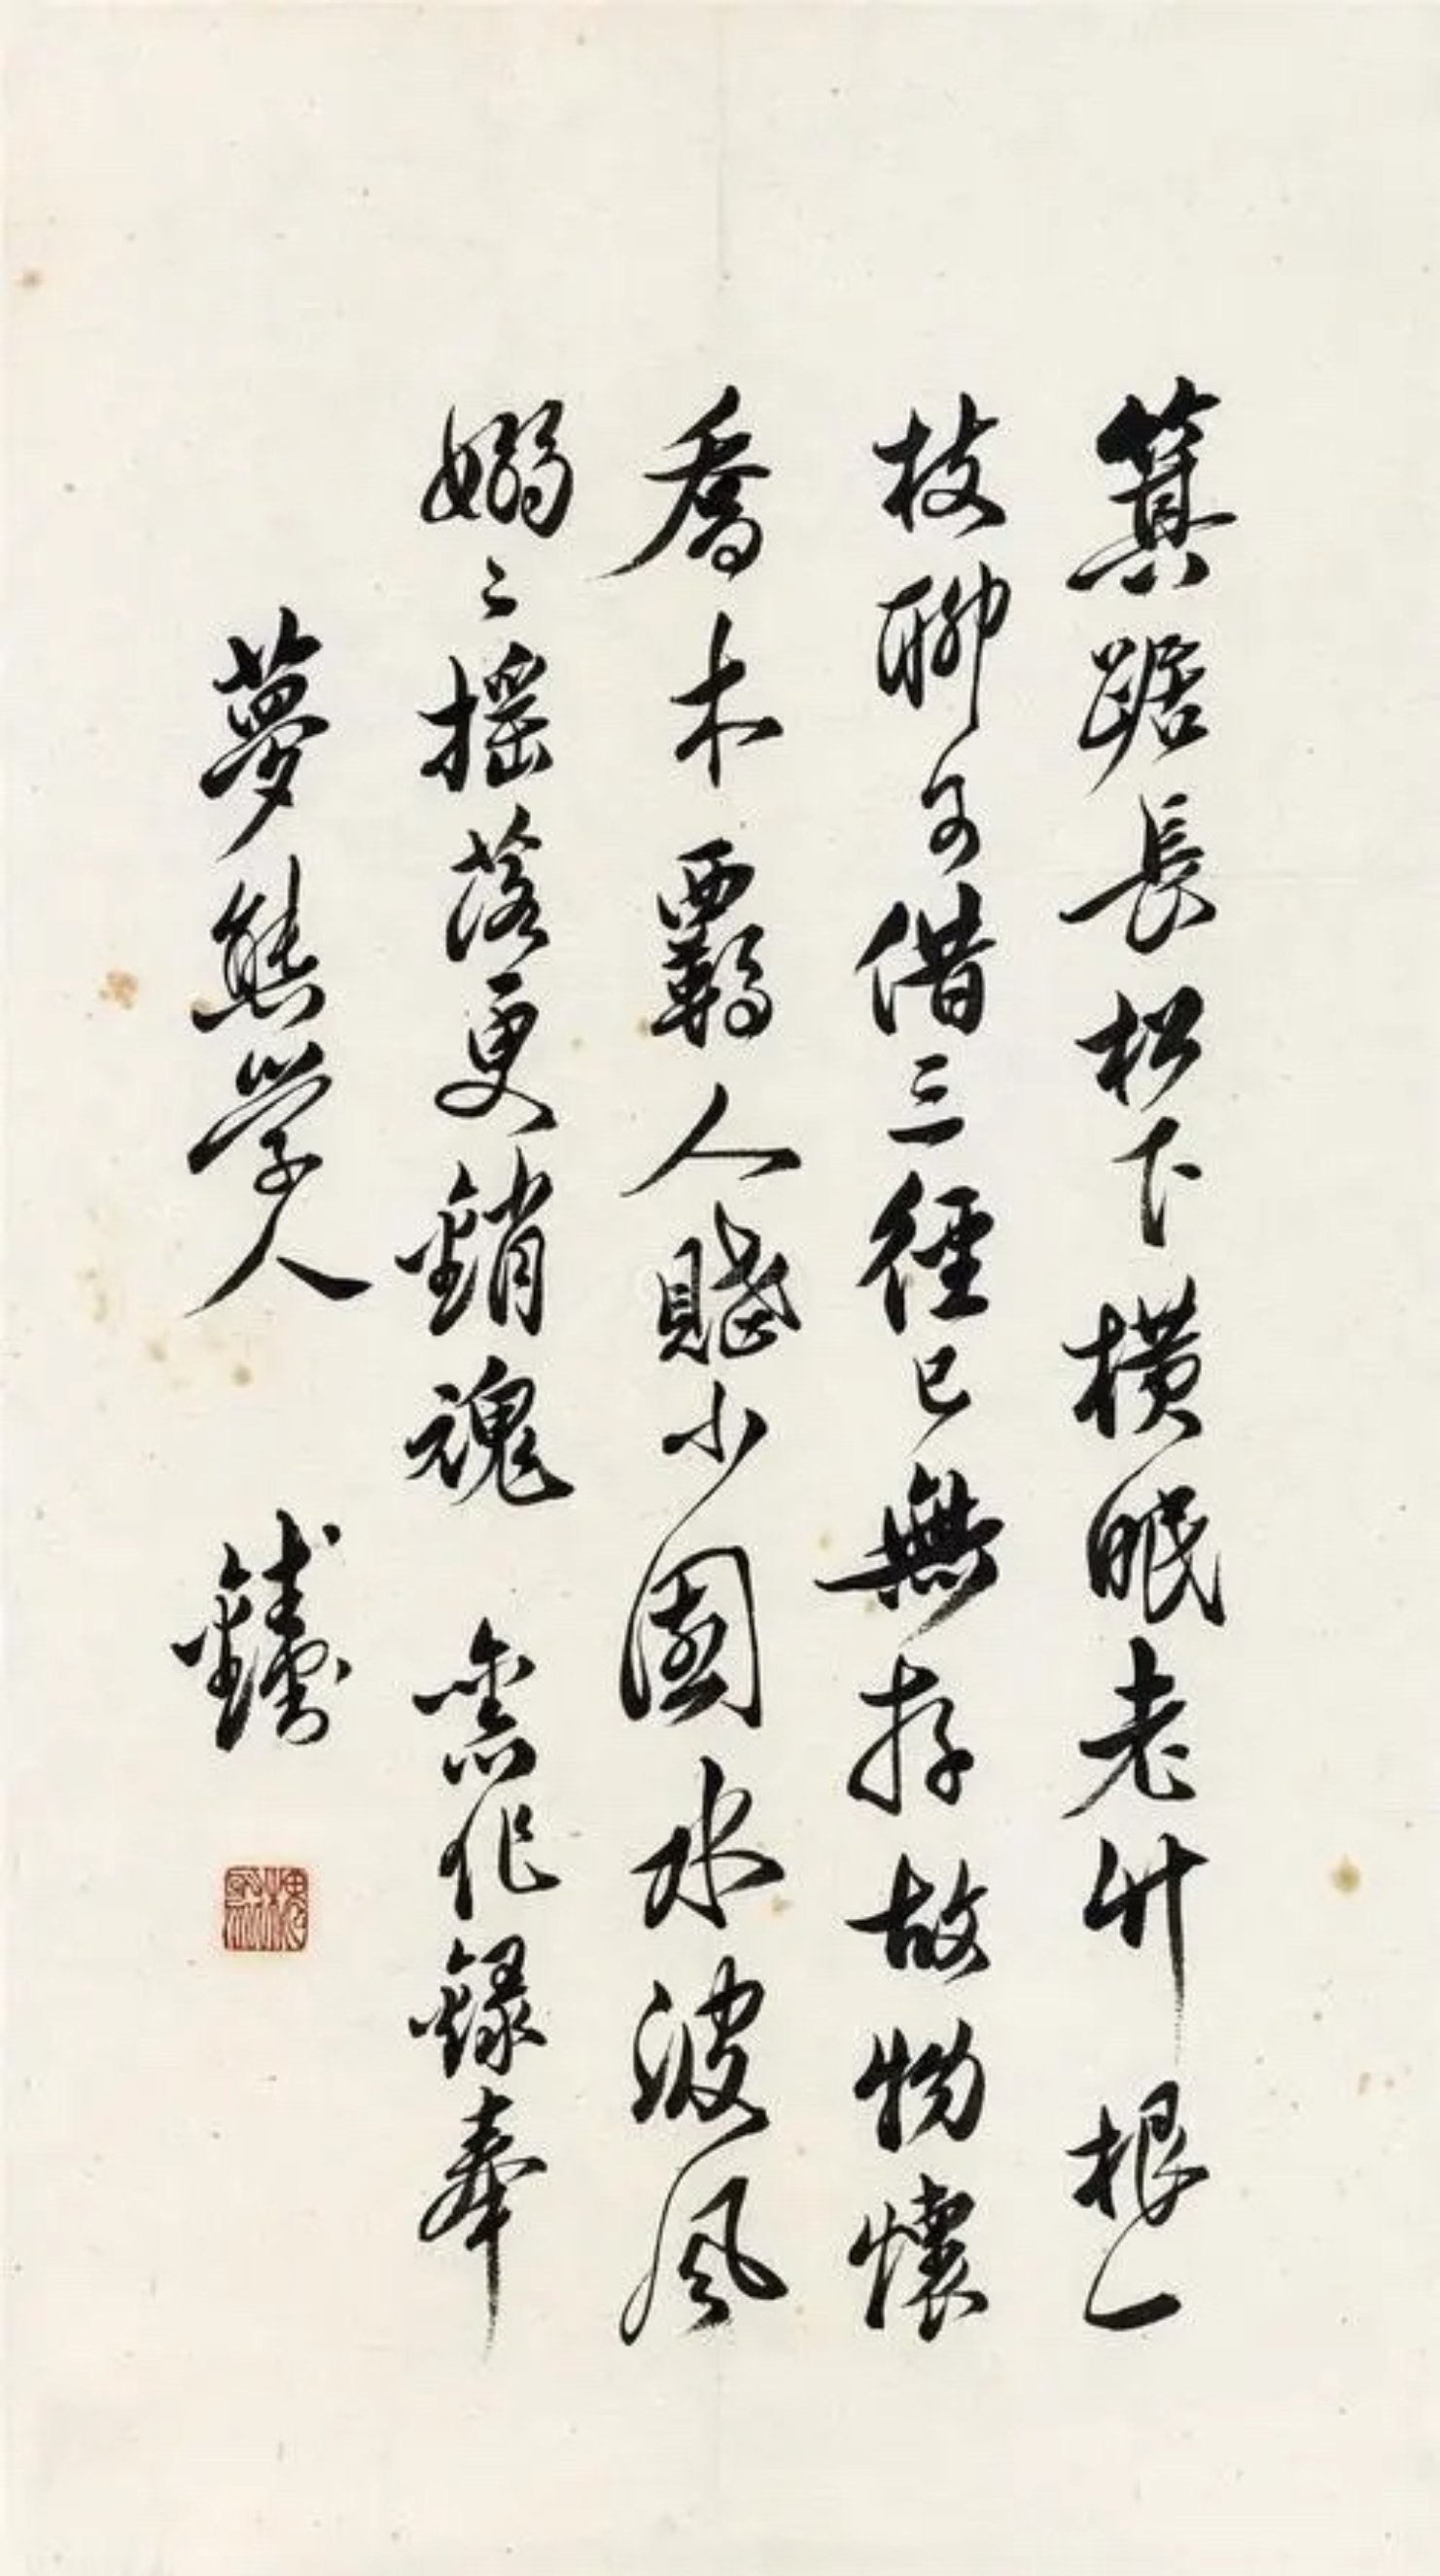 箕踞長松下橫眠老竹根一
枝聊可借三徑已無存故物懷
喬木羈人賤小園水波風
嫋〻搖落更銷魂 舊作錄奉
夢熊學人 鑄